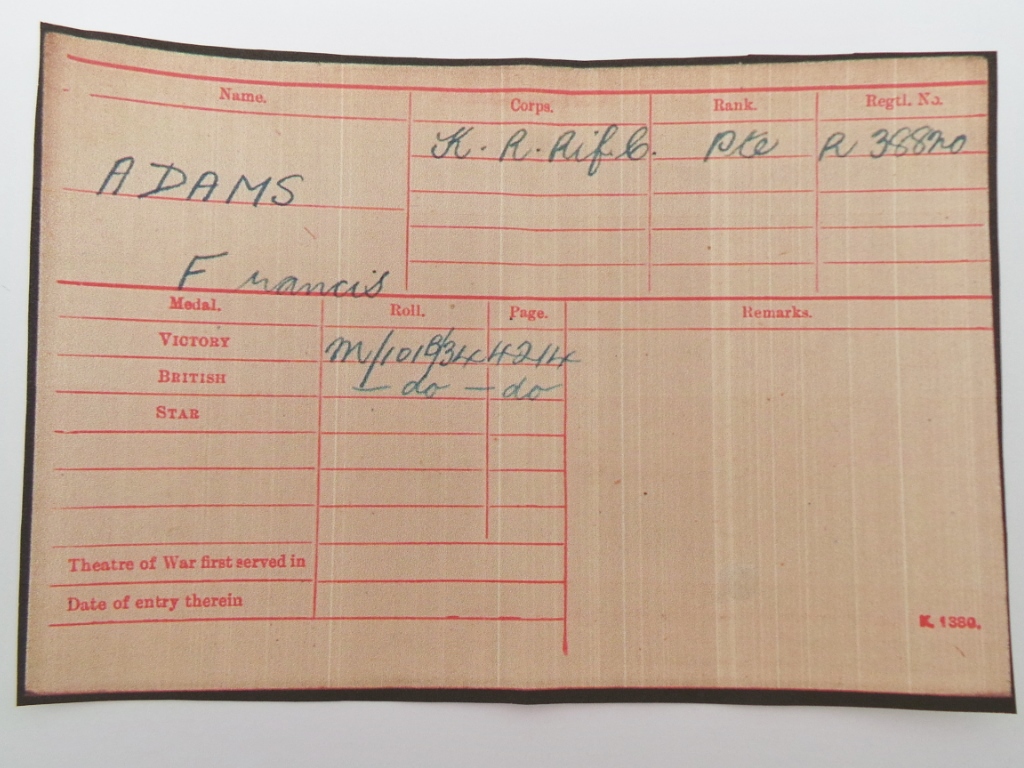 Name. Corps. Rank. Regtl. No.
K. R. Rif. C. Pte R 38820
ADAMS
Francis
Medal. Roll. Page. Remarks.
VICTORY 4214
BRITISH — do — do
STAR
Theatre of War first served in
Date of entry therein
K. 1380.